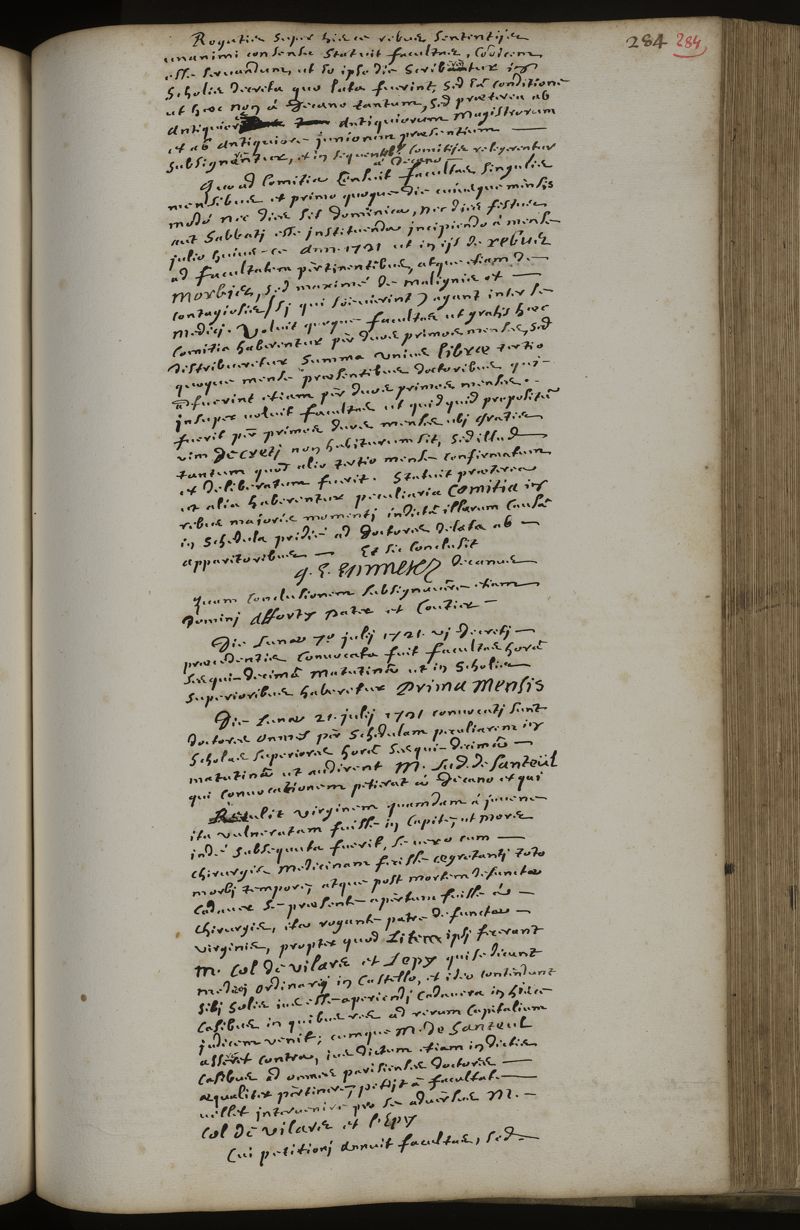 284 284
Rogatis super hisce rebus sententijs
unanimi consensu statuit facultas, Codicem
esse servandum, ut eo ipso die scribantur in
Scholis decreta quo lata fuerint, sed eâ conditione
ut hoc non à Decano tantum, sed præterea ab
antiquiore antiquiorum Magistrorum
et ab antiquiore juniorum præsentium
subsignentur, et in sequentibus Comitijs relegerentur
à Decano
Quoad Comitia Censuit facultas singulis
mensibus et primo quoque die cuiusque mensis
modò nec dies sit dominica, nec dies festus
aut Sabbati esse instituenda incipiendo à mense
julio huius-ce anni 1721 ut in ijs de rebus
ad facultatem pertinentibus, atque etiam de
Morbis, sed maximè de malignis et
contagiosis (si qui sævierint) agant inter se
medici. Voluit quoque facultas ut gratis hæc
Comitia haberentur per duos primos menses, sed
distribueretur summa unius libræ tertio
quoque mense præsentibus doctoribus qui
adfuerint etiam per duos primos menses.
insuper voluit facultas ut quidquid propositum
fuerit per primos duos menses ubi gratis
vim Decreti non habiturum sit, sed illud
tantum quod alio tertio mense confirmatum
et deliberatum fuerit. Statuit præterea
ut alia haberentur peculiaria Comitia in
rebus majoris momenti indictâ illarum causâ
in schedula pridiè ad doctores delata ab
apparitoribus Et sic conclusit
q. E. Emmerez Decanus
quam Conclusionem subsignavêre etiam
Domini Afforty Pater et Coutier
Die Lunæ 7â julij 1721. vi decreti
præcedentis Convocata fuit facultas horâ
sesqui-decimâ Matutinâ ut in Scholis
superioribus haberetur Prima Mensis
Die Lunæ 21. julij 1721 convocati sunt
doctores omnes per schedulam peculiarem in
Scholas superiores horâ sesqui-decimâ
matutinâ ut audirent M. Lud. de Santeül
qui convocationem petierat à Decano et qui
Retulit virginem quamdam à juvene
ita vulneratam fuisse in capite, ut mors
indè subsequuta fuerit, se vero cum
chirurgis medicinam fecisse ægrotanti toto
morbi tempore, atque post mortem defunctæ
cadaver se-præsente apertum fuisse à
chirurgis, ita rogante patre defunctæ
virginis, propter quod Litem ipsi fecerant
M. Col de Vilars et Lepy qui se dicunt
medici ordinarij in Castello, et ideo contendunt
sibi solis ius esse aperiendi cadavera in hisce
casibus in quibus res ad rerum Capitalium
judicem venit; cumque M. de Santeul
asseret contra, ius dictum etiam in dictis
Casibus ad omnes parisienses doctores
æqualiter pertinere, petijt à facultate
vellet intervenire pro se adversus M.
Col de Vilars et l'Epy
Cui petitioni annuit facultas, sed